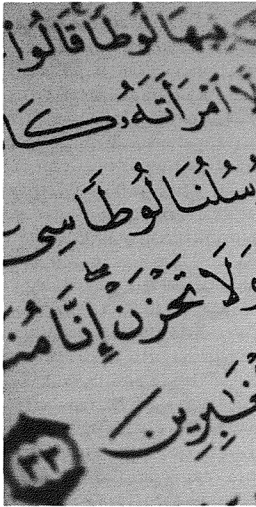 فِيهَا لُوطًا قَالُوا
ٱمْرَأَتَهُۥ كَا
سُلُنَا لُوطًا سِىٓ
وَلَا تَحْزَنْ إِنَّا مُنَ
غَٰبِرِينَ ٣٣